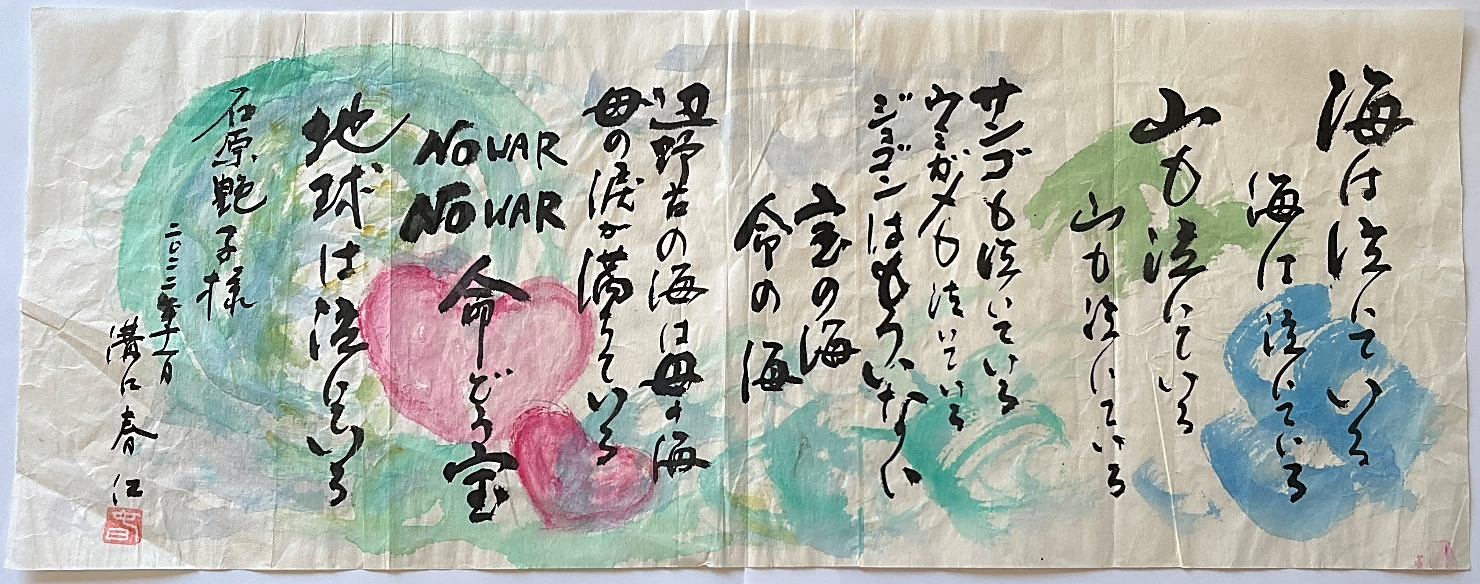 海は泣いている
海は泣いている
山も泣いている
山も泣いている
サンゴも泣いている
ウミガメも泣いている
ジュゴンはもういない
宝の海
命の海
辺野古の海は母の海
母の涙が満ちている
NO WAR
NO WAR
命どぅ宝
地球は泣いている
石原艶子様
二〇二二年十一月
溝口春江